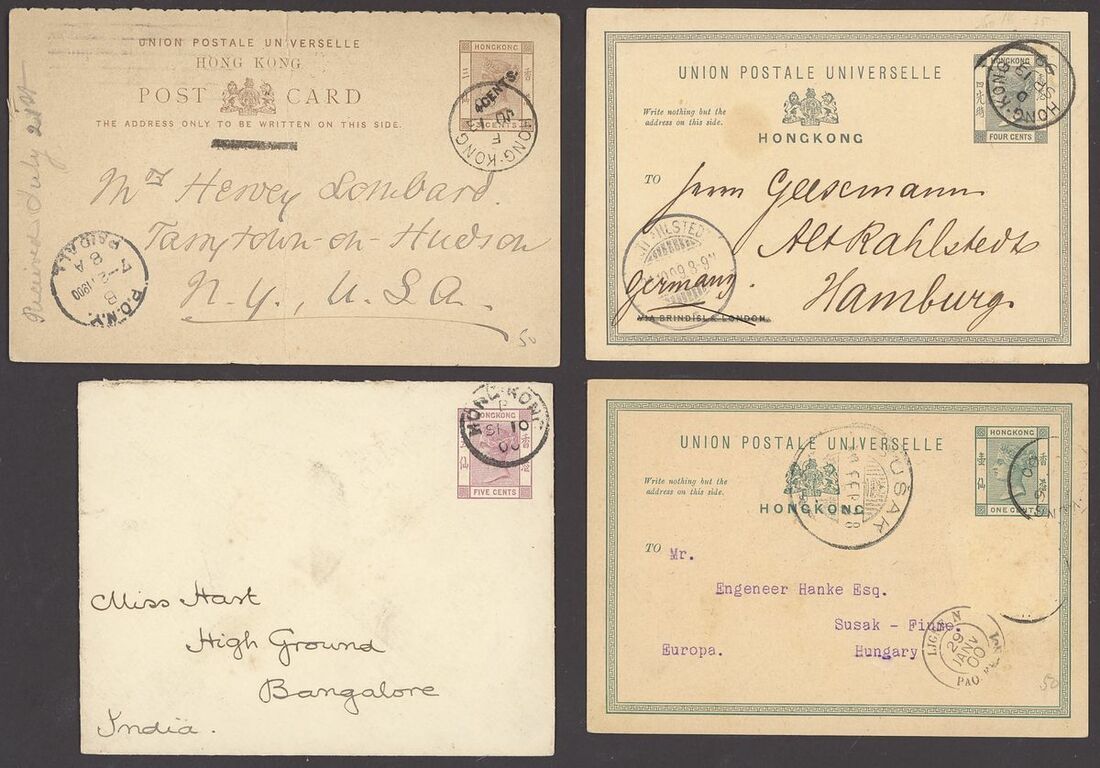 UNION POSTALE UNIVERSELLE
HONG KONG
POST CARD
THE ADDRESS ONLY TO BE WRITTEN ON THIS SIDE.
HONGKONG
三
香
CENTS
4 CENTS.
HONG-KONG
F
00
Received July 21st
Hervey Lombard.
Tarrytown-on-Hudson
N.Y., U.S.A.
PAID ALL
8 A
7-2-1900
B
P.O.N.Y.
50
UNION POSTALE UNIVERSELLE
Write nothing but the
address on this side.
HONGKONG
HONGKONG
四
香
FOUR CENTS
HONG-KONG
D
TO
Herrn Geesemann
Alt Rahlstedt
Germany.
Hamburg
VIA BRINDISI & LONDON.
HONGKONG
仙
香
港
FIVE CENTS
HONG-KONG
10
00
Miss Hast
High Ground
Bangalore
India.
UNION POSTALE UNIVERSELLE
Write nothing but the
address on this side.
HONGKONG
HONGKONG
壹
仙
香
港
ONE CENT
SUSAK
TO
Mr.
Engeneer Hanke Esq.
Susak - Fiume.
Europa.
Hungary
29
JANV
00
50